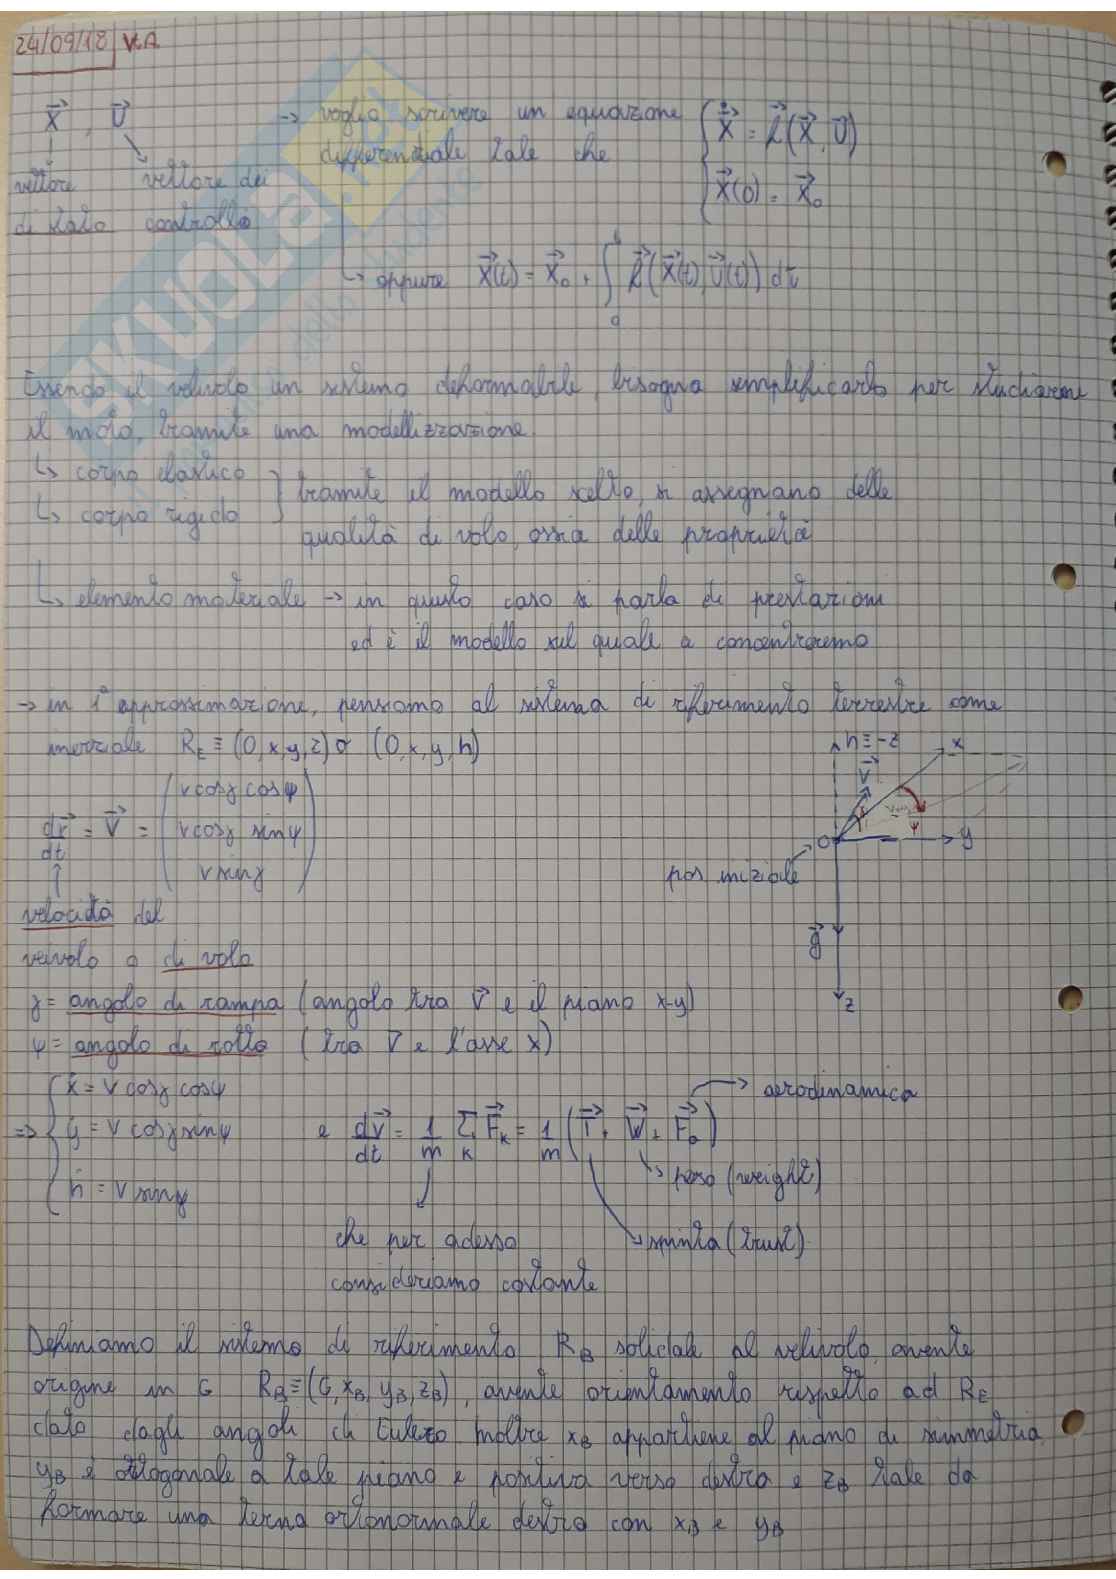 24/09/18 V.A
X⃗, U⃗ → voglio scrivere un equazione { Ẋ⃗ = f⃗(X⃗, U⃗)
vettore di stato
vettore dei controlli
differenziale tale che
X⃗(0) = X⃗₀
↳ oppure X⃗(t) = X⃗₀ + ∫₀ᵗ f⃗(X⃗(t), U⃗(t)) dt
Essendo il velivolo un sistema deformabile, bisogna semplificarlo per studiarne
il moto, tramite una modellizzazione
↳ corpo elastico
↳ corpo rigido
} tramite il modello scelto, si assegnano delle
qualità di volo, ossia delle proprietà
↳ elemento materiale → in questo caso si parla di prestazioni
ed è il modello sul quale ci concentreremo
→ in 1ª approssimazione, pensiamo al sistema di riferimento terrestre come
inerziale R_E ≡ (O,x,y,z) o (O,x,y,h)
dr⃗/dt = V⃗ = ( v cosγ cosψ
v cosγ sinψ
v sinγ )
h ≡ -z
x
V⃗
γ
ψ
O
y
pos. iniziale
g⃗
z
velocità del
velivolo o di volo
γ = angolo di rampa (angolo tra V⃗ e il piano x-y)
ψ = angolo di rotta (tra V⃗ e l'asse x)
⇒ { ẋ = v cosγ cosψ
ẏ = v cosγ sinψ
ḣ = v sinγ
e dv⃗/dt = 1/m Σ_K F⃗_K = 1/m (T⃗ + W⃗ + F⃗_a)
→ aerodinamica
↳ peso (weight)
→ spinta (trust)
che per adesso
consideriamo costante
Definiamo il sistema di riferimento R_B solidale al velivolo, avente
origine in G R_B ≡ (G, x_B, y_B, z_B), avente orientamento rispetto ad R_E
dato dagli angoli di Eulero inoltre x_B appartiene al piano di simmetria,
y_B è ortogonale a tale piano e positiva verso destra e z_B tale da
formare una terna ortonormale destra con x_B e y_B
SKUOLA.net